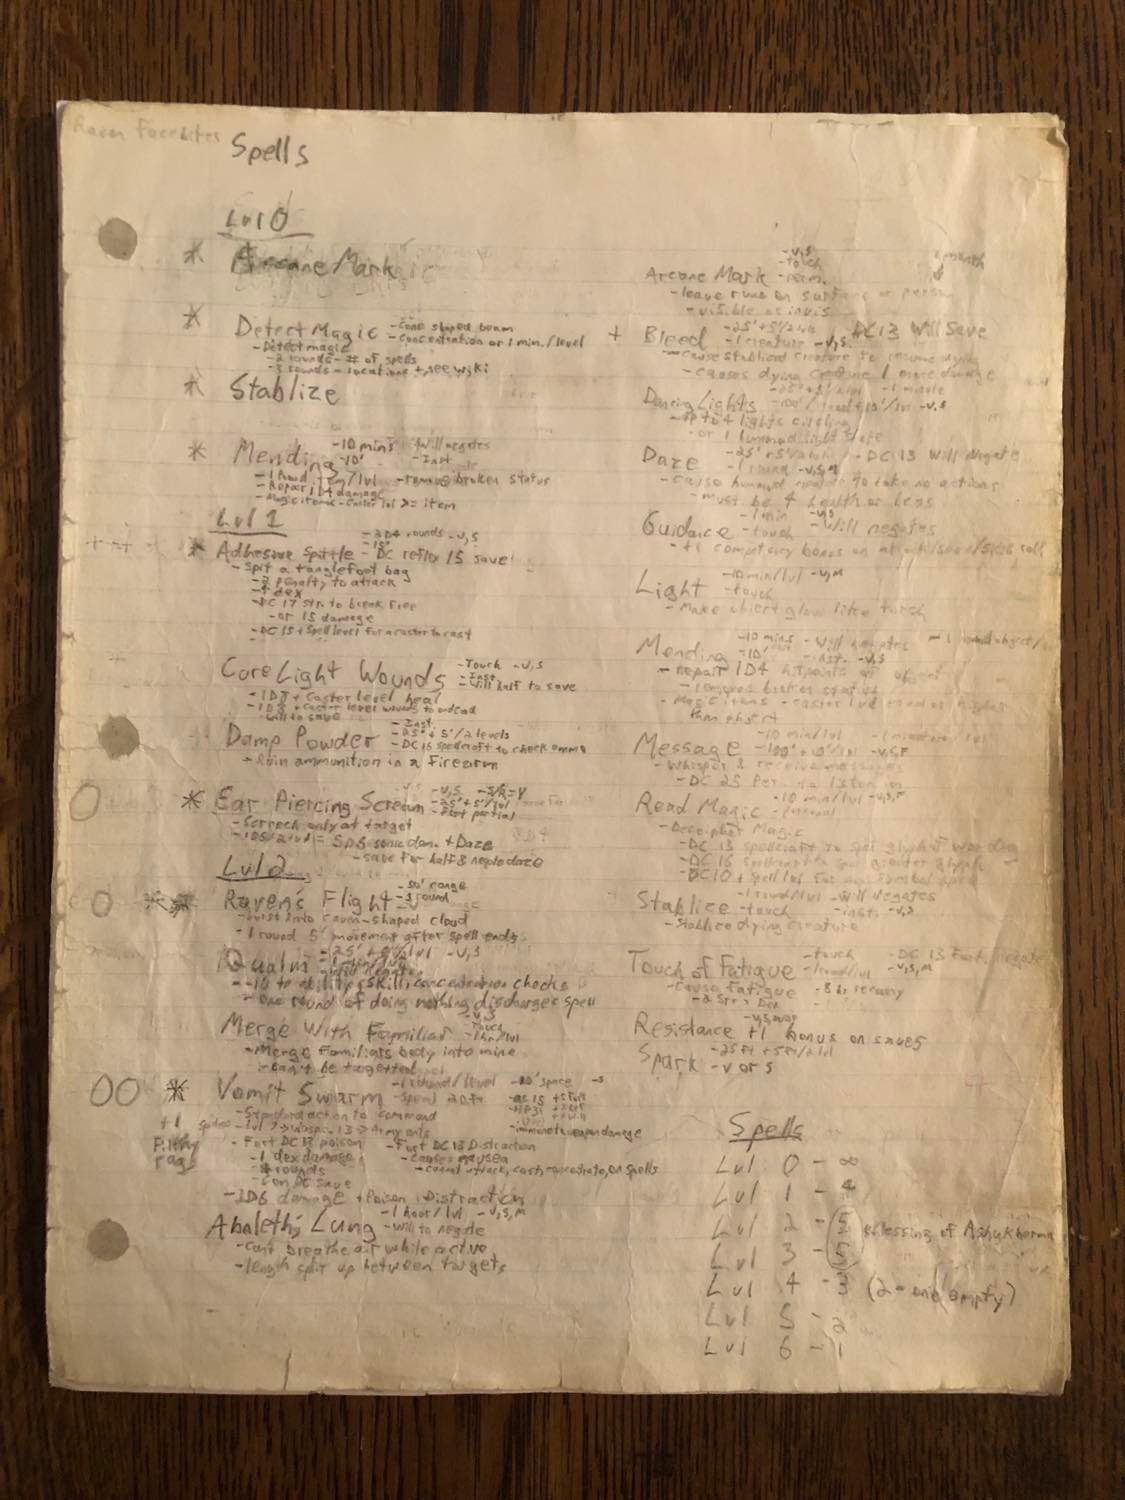 Spells
Lvl 0
* Arcane Mark
* Detect Magic - Cone shaped beam
- Concentration or 1 min./level
- Detect magic
- 2 rounds - # of spells
- 3 rounds - locations + see wiki
* Stablize
* Mending - 10 mins - will negates
- 10' - Inst.
- 1 item/lvl - remove broken status
- Repair 1d4 damage
- Magic items - caster lvl >= item
Lvl 1
* Adhesive Spittle - DC reflex 15 save
- 2D4 rounds - v,s
- 15'
- Spit a tanglefoot bag
- 2 penalty to attack
- 4 dex
- DC 17 str. to break free
- or 15 damage
- DC 15 + Spell level for a caster to cast
Cure Light Wounds - Touch - v,s
- Inst.
- Will half to save
- 1D8 + Caster level heal
- 1D8 + Caster level wounds to undead
- will to save
Damp Powder - Inst.
- 25' + 5'/2 levels
- DC 15 spellcraft to check ammo
- Ruin ammunition in a firearm
O * Ear Piercing Scream - v,s - S/R=Y
- 25' + 5'/lvl
- Fort partial
- Screech only at target
- sonic dam. + Daze
- save for half & negate daze
Lvl 2
O * Raven's Flight - 30' range
- 1 round
- burst into raven-shaped cloud
- 1 round 5' movement after spell ends
Qualm - v,s
- -10 to ability, skill, concentration checks
- One round of doing nothing discharges spell
Merge With Familiar - v,s
- Touch
- 1hr/lvl
- Merge familiars body into mine
- can't be targetted
OO * Vomit Swarm - 1 round/level - 10' space
- Speed 20ft
- Standard action to command
- Army ants
- immune to weapon damage
+1 spides
Filthy
rags
- Fort DC 13 poison - Fort DC 13 Distraction
- 1 dex damage - causes nausea
- 4 rounds - cannot attack, cast, concentrate, on spells
- Con DC save
- 1D6 damage + Poison + Distraction
Aboleth's Lung - 1 hour/lvl - v,s,m
- will to negate
- can't breathe air while active
- length split up between targets
Arcane Mark - v,s
- touch
- perm.
1 month
- leave rune on surface or person
- visible or invis
+ Bleed - 25' + 5'/2 lvl - DC 13 Will Save
- 1 creature - v,s
- cause stablized creature to resume dying
- causes dying creature 1 more damage
Dancing Lights - 1 minute
- v,s
- up to 4 lights circling
Daze - 25' + 5'/2 lvl - DC 13 Will Negate
- v,s,m
- cause humanoid creature to take no actions
- must be 4 health or less
Guidance - 1 min - v,s
- touch - Will negates
- +1 competency bonus on attack/save/skill roll
Light - 10 min/lvl - v,m
- touch
- Make object glow like torch
Mending - 10 mins - Will negates
- 10' - inst. - v,s
- repair 1D4 hitpoints of object
- removes broken status
- Magic items - caster lvl even or higher
than object
Message - 10 min/lvl
- 100' + 10'/lvl - v,s,F
- Whisper & receive messages
- DC 25 Per. to listen in
Read Magic - 10 min/lvl - v,s,F
- Personal
- Decipher Magic
- DC 13 spellcraft to spot glyph of warding
- DC 16 spellcraft to spot greater glyph
- DC 10 + Spell lvl for any symbol spell
Stablize - 1 round/lvl - Will Negates
- touch - inst. - v,s
- Stablize dying creature
Touch of Fatigue - touch - DC 13 Fort. negate
- 1 round/lvl - v,s,m
- cause fatigue - 8 hr recovery
- 2 Str & Dex
Resistance +1 bonus on saves
Spark - 25ft + 5ft/2 lvl
- v or s
Spells
Lvl 0 - ∞
Lvl 1 - 4
Lvl 2 - 5 Blessing of
Lvl 3 - 5
Lvl 4 - 3 (2 - one empty)
Lvl 5 - 2
Lvl 6 - 1